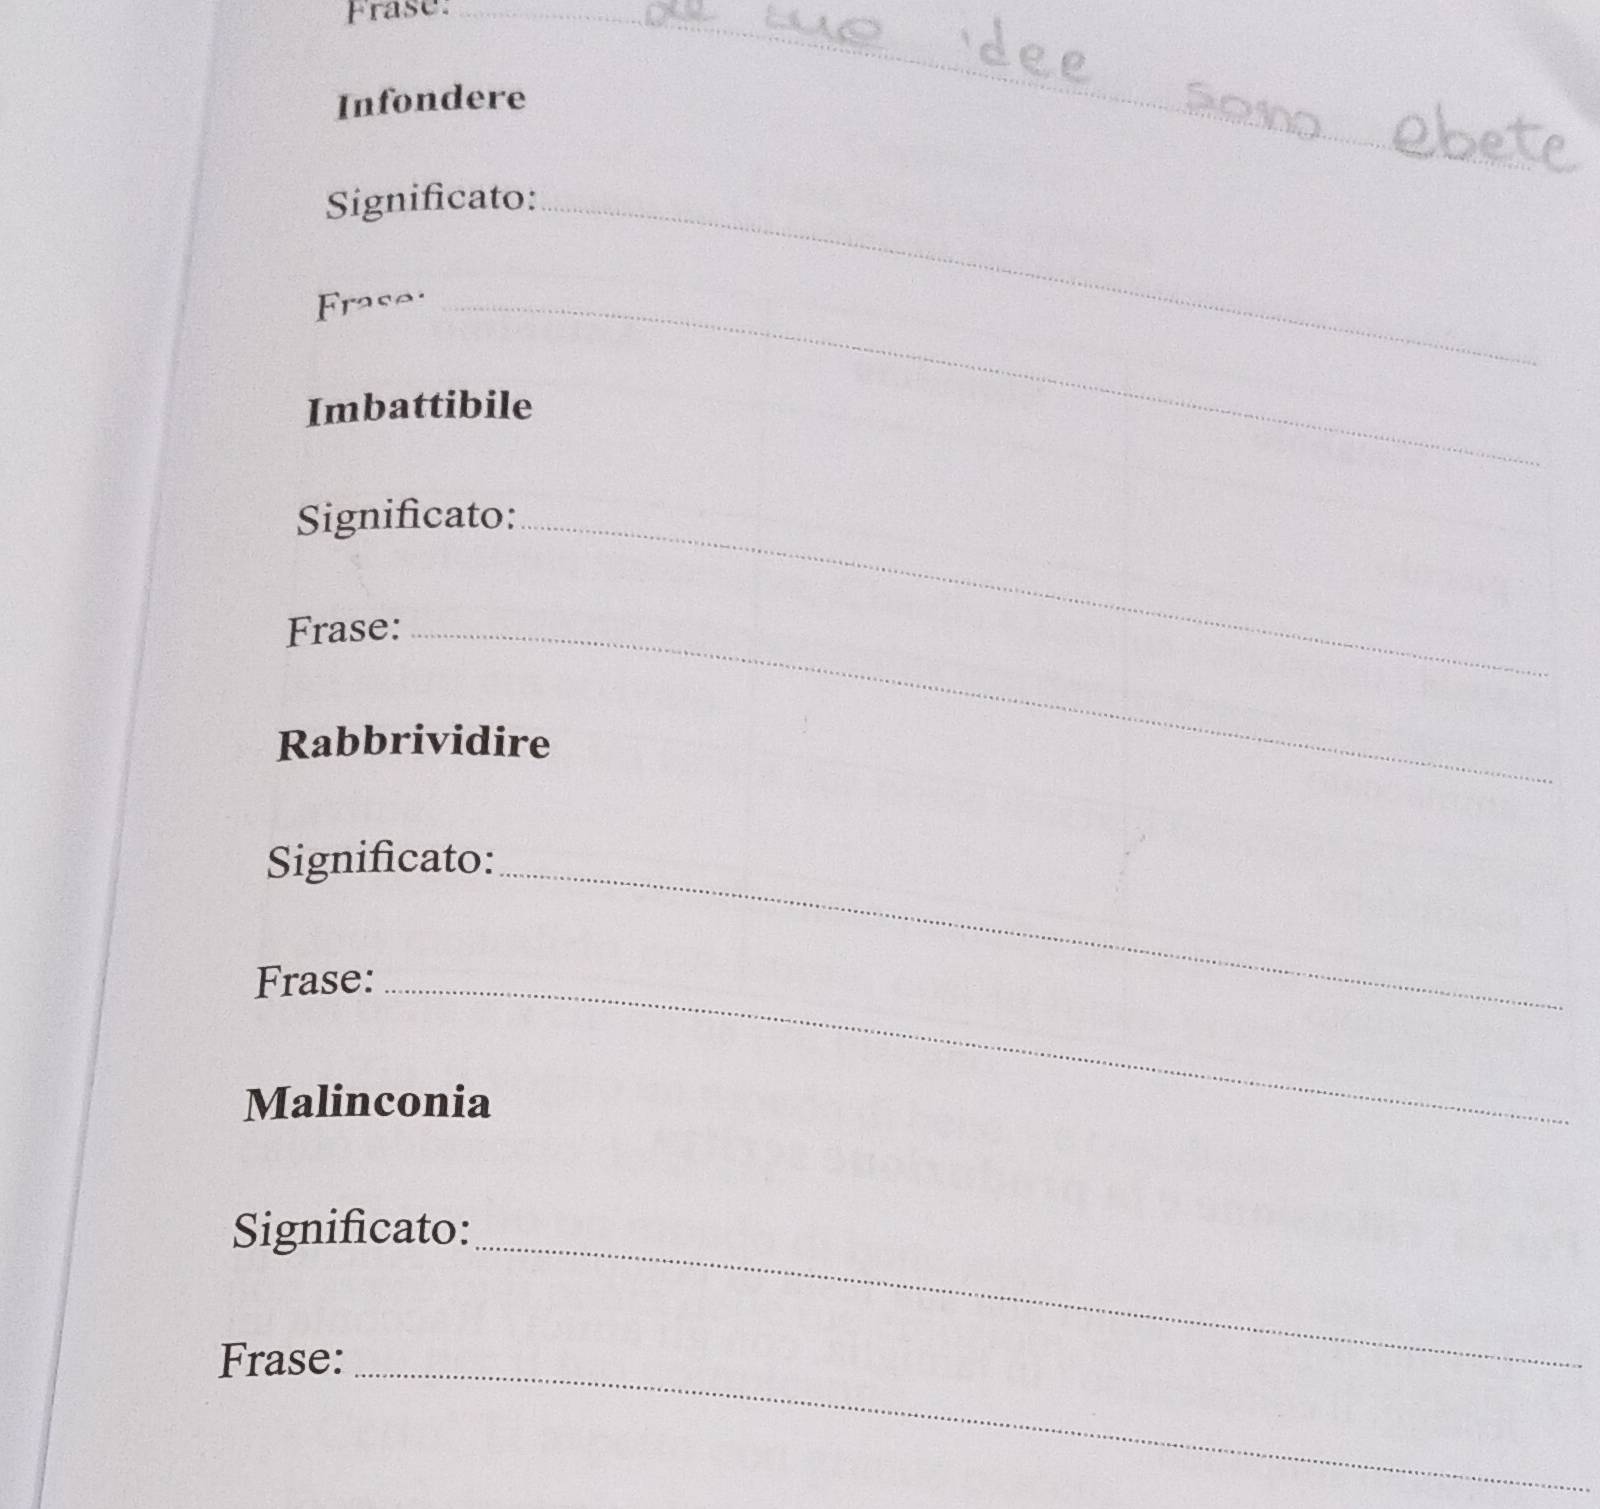 Frase: le tuo idee sono ebete
Infondere
Significato:
Frase:
Imbattibile
Significato:
Frase:
Rabbrividire
Significato:
Frase:
Malinconia
Significato:
Frase: